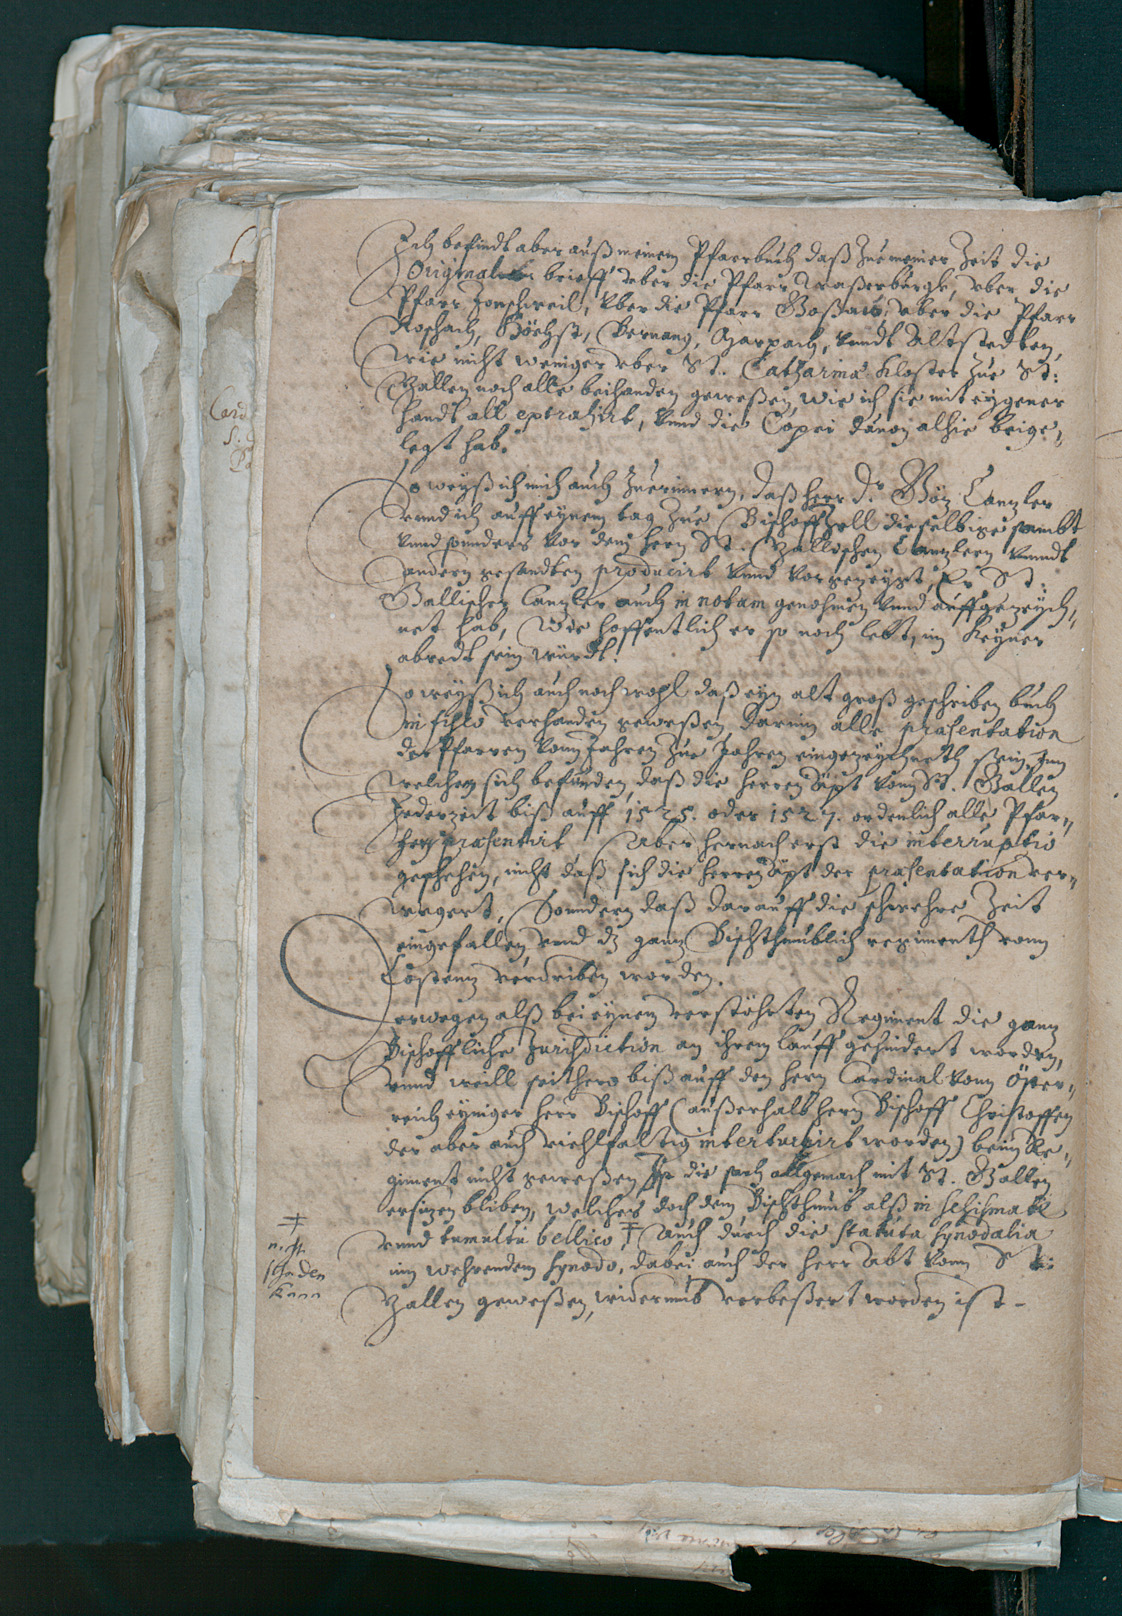 Ich befindt aber auß meinem Pfarrbuch daß zue meiner Zeit die
Original brieff vber die Pfarr Waßerburgk, vber die
Pfarr Jonschweil, vber die Pfarr Goßaw, vber die Pfarr
Roschach, Höchst, Bernang, Marpach, vnndt Altstedten,
wie nicht weniger vber St. Catharina Kloster zue St:
Gallen noch alle beihanden geweßen, wie ich sie mit eygener
handt all extrahirt, vnnd die Copei dauon alhie beige„
legt hab.
So weyß ich mich auch zuerinnern, daß herr Dr Göz Canzler
vnnd ich auff eynem tag zue Bischoffzell dieselbige sambt
vnnd sonders vor dem hern St. Gallischen Canzlern vnndt
andern gesandten producirt vnnd vorgezeygt, Er St:
Gallischer Canzler auch in notam genohmen vnnd auffgezeych„
net hab, wie hoffentlich er so noch lebt, in keyner
abredt sein würdt.
So weyß ich auch noch wohl daß eyn alt groß geschriben buch
in fisco verhanden geweßen darinn alle præsentation
der Pfarren vonn Jahren zue Jahren eingezeychneth sein, Inn
welchem sich befunden, daß die herren Äpt vonn St. Gallen
Jederzeit biß auff 1525. oder 1527. ordenlich alle Pfar„
hern præsentirt Aber hernach erst die interruptio
geschehen, nicht daß sich die herren Äpt der præsentation ver„
wegert, Sonndern daß darauff die schwehre Zeit
eingefallen, vnnd dz ganz Bischthumblich regimenth vonn
Costanz verdriben worden.
Derwegen alß bei eynem verstöhrten Regiment die ganz
Bischoffliche Jurisdiction an ihrem lauff gehindert worden,
vnnd weill seithero biß auff den hern Cardinal vonn Öster„
reich eyniger herr Bischoff (außerhalb hern Bischoff Christoffen
der aber auch viehlfaltig interturbirt worden) beim Re„
giment nicht geweßen, Ist die sach allgemach mit St. Gallen
ersizen bliben, welches doch dem Bischthumb alß in schismate
vnnd tumultu bellico ‡, Auch durch die statuta synodalia
im wehrendem synodo, dabei auch der herr Abt vonn St:
Gallen geweßen, widerumb verbeßert worden ist.
‡
nicht
schaden
kann